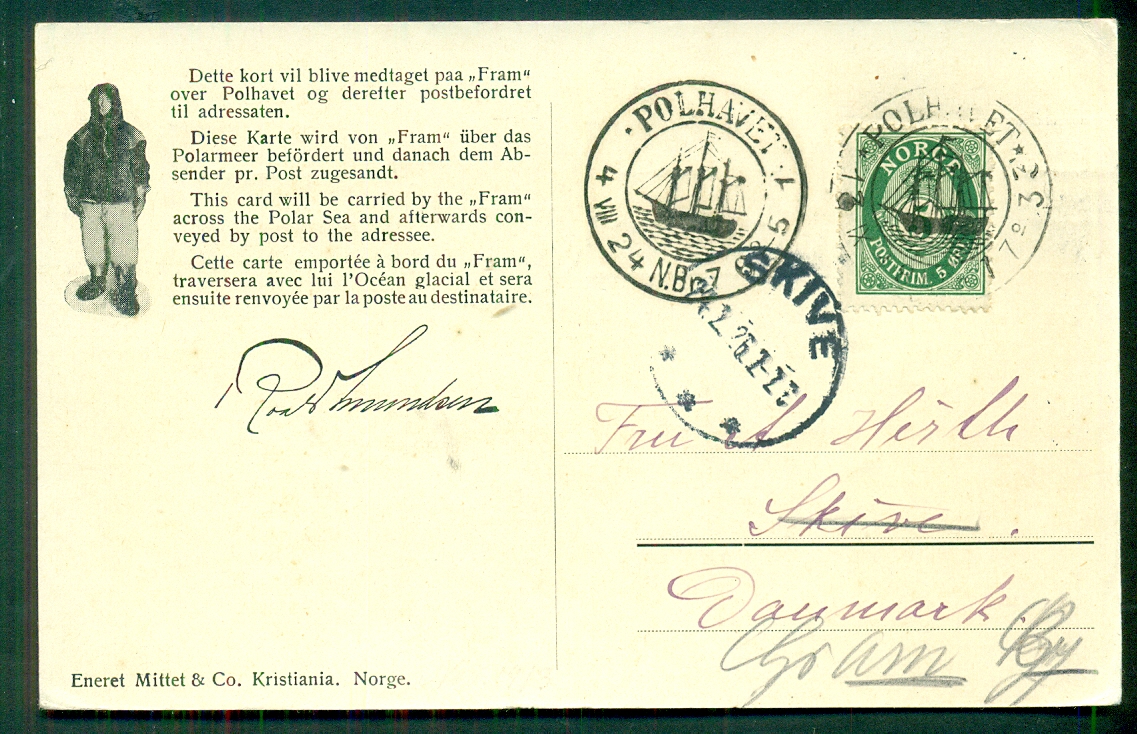 Dette kort vil blive medtaget paa „Fram“
over Polhavet og derefter postbefordret
til adressaten.
Diese Karte wird von „Fram“ über das
Polarmeer befördert und danach dem Ab-
sender pr. Post zugesandt.
This card will be carried by the „Fram“
across the Polar Sea and afterwards con-
veyed by post to the adressee.
Cette carte emportée à bord du „Fram“,
traversera avec lui l'Océan glacial et sera
ensuite renvoyée par la poste au destinataire.
Roald Amundsen
POLHAVET
4 VIII 24 N.Br.
POLHAVET
NORGE
POSTFRIM. 5 ØRE
SKIVE
Hirth
Skive.
Danmark
Eneret Mittet & Co. Kristiania. Norge.